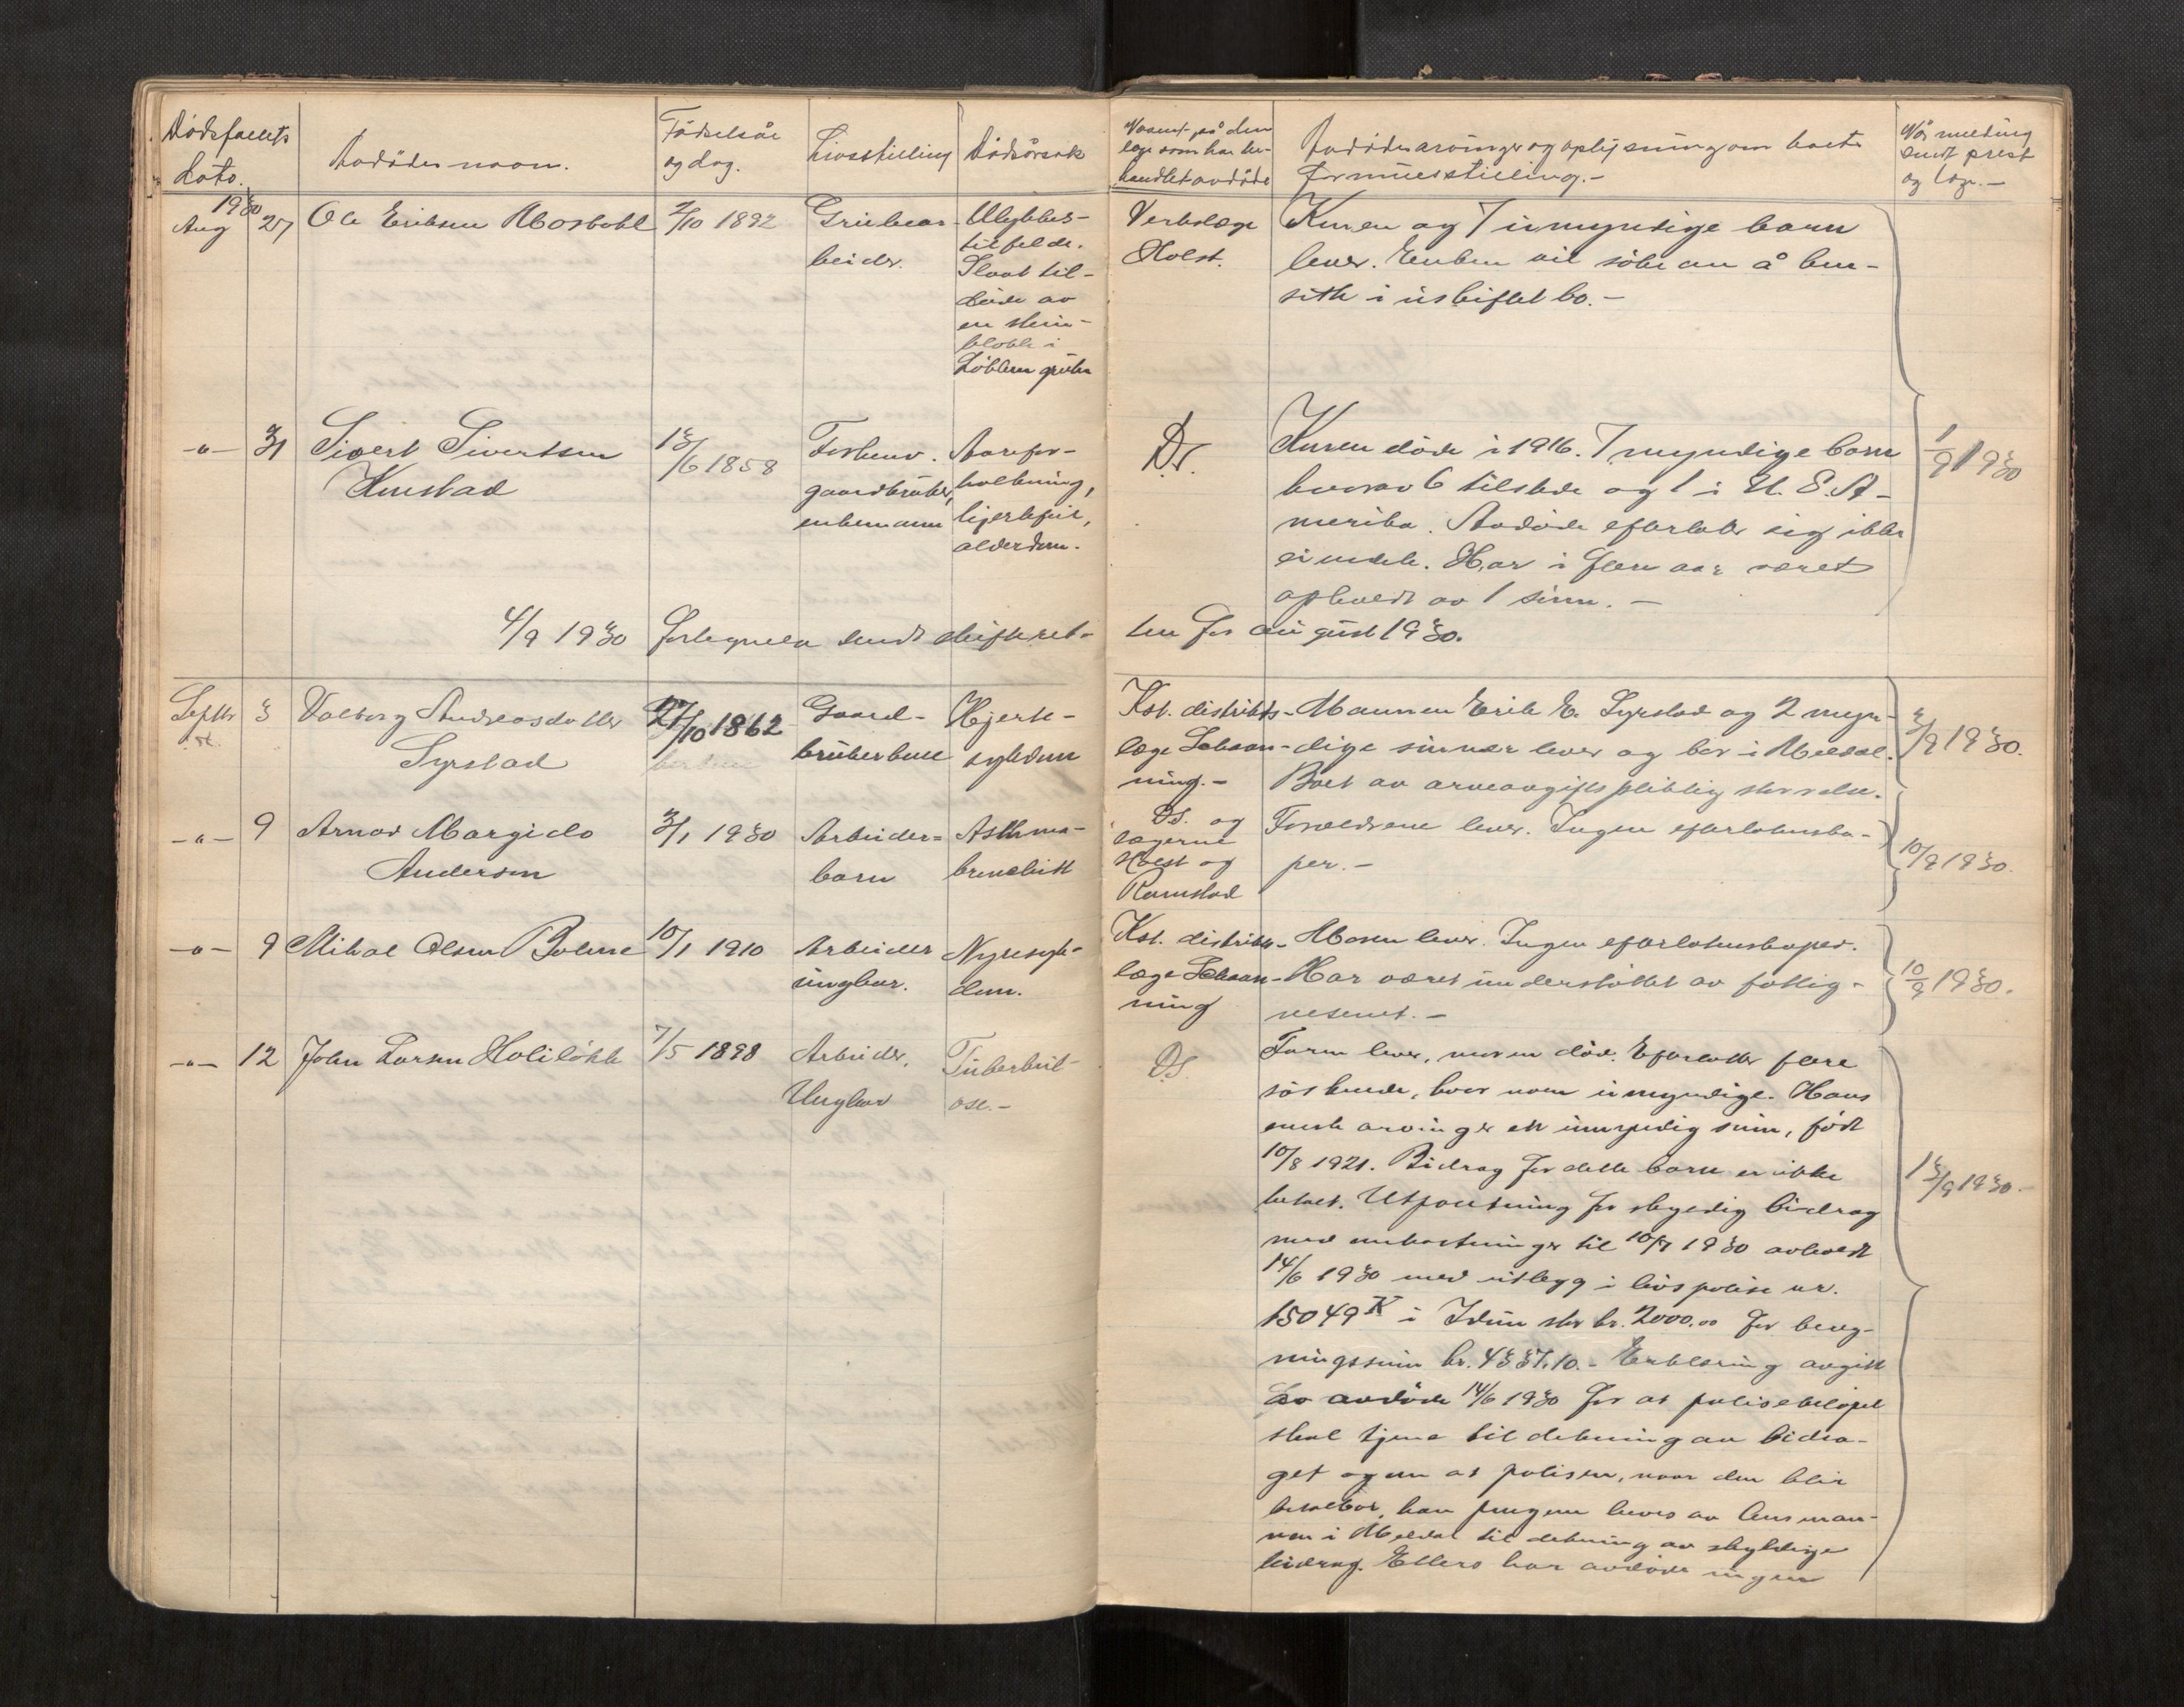 Dødsfaldets
Dato.
Avdødes navn.
Fødselsår
og dag.
Livsstilling
Dødsårsak
Navnet på den
læge som har be-
handlet avdøde
Avdødes arvinger og oplysning om boets
formuesstilling.-
Når melding
sendt prest
og læge.-
1930
Aug 27 Ole Eriksen Mosbakk 2/10 1892 Grubear-
beider.
Ulykkes-
tilfelde.
Slaat til-
døde av
en stein-
blokk i
Løkken grube
Verkslæge
Holst.
Konen og 7 umyndige barn
lever. Enken vil søke om å bli
sitte i uskiftet bo.-
-"- 31 Sivert Sivertsen
Knustad
13/6 1858
Forhenv.
gaardbruker,
enkemann
Aarefor-
kalkning,
hjertefeil,
alderdom.
Ds.
Konen døde i 1916. 7 myndige barn
hvorav 6 tilstede og 1 i U.S.A-
merika. Avdøde efterlater sig ikke
eiendele. Har i flere aar været
opholdt av 1 sønn.-
1/9 1930
4/9 1930 fortegnelse sendt skifteret-
ten for august 1930.
Septbr 3 Valborg Andreasdatter
Syrstad
27/10 1862
Gaard-
brukerkone
Hjerte-
sykdom
Kst. distrikts-
læge Schaan-
ning.-
Mannen Erik E. Syrstad og 2 myn-
dige sønner lever og bor i Meldal.
Boet av arveavgiftspliktig størrelse.
3/9 1930.
-"- 9 Arnov Margido
Andersen
3/1 1930
Arbeider-
barn
Asthma-
bronchitt
Ds. og
lægerne
Holst og
Ramstad
Forældrene lever. Ingen efterlatenska-
per.-
10/9 1930.
-"- 9 Mikal Olsen Bolme 10/1 1910 Arbeider
ungkar.
Nyresyk-
dom.
Kst. distrikts-
læge Schaan-
ning
Moren lever. Ingen efterlatenskaper.
Har været understøttet av fattig-
vesenet.-
10/9 1930.
-"- 12 John Larsen Holiløkk 7/5 1898 Arbeider,
Ungkar
Tuberkul-
ose.-
Ds.
Faren lever, moren død. Efterlater flere
søskende, hvorav noen umyndige. Hans
eneste arvinger en umyndig sønn, født
10/8 1921. Bidrag for dette barn er ikke
betalt. Utpantning for skyldig bidrag
med omkostninger til 10/7 1930 avholdt
14/6 1930 med utlegg i livspolise nr.
15049 K i Idun stor kr. 2000.00 for beløp-
ningssum kr. 4337.10.- Erklæring avgitt
av avdøde 14/6 1930 for at polisebeløpet
skal tjene til dekning av bidra-
get og om at polisen, naar den blir
betalbar, kan pengene heves av lensman-
nen i Meldal til dekning av skyldige
bidrag. Ellers har avdøde ingen
13/9 1930.-